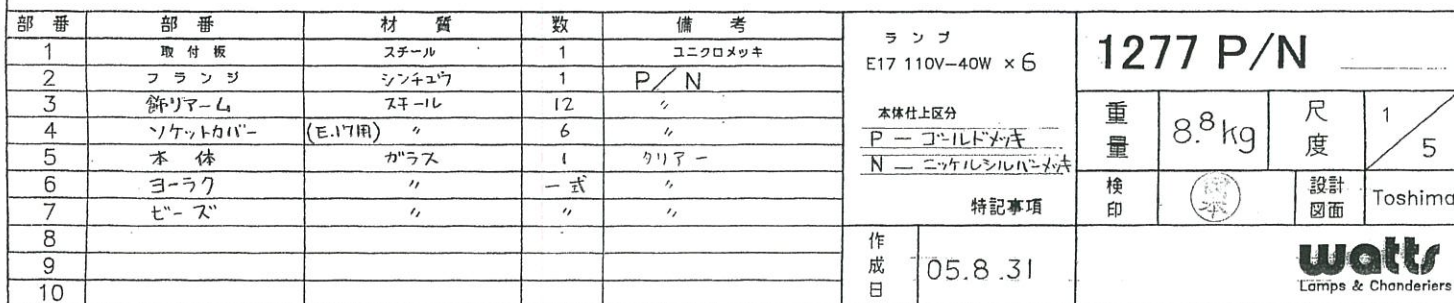 部 番 部 番 材 質 数 備 考
1 取 付 板 スチール 1 ユニクロメッキ
2 フ ラ ン ジ シンチュウ 1 P/N
3 飾リアーム スチール 12 〃
4 ソケットカバー (E.17用) 〃 6 〃
5 本 体 ガラス 1 クリアー
6 ヨーラク 〃 一式 〃
7 ビーズ 〃 〃 〃
8
9
10
ラ ン プ
E17 110V-40W ×6
本体仕上区分
P ― ゴールドメッキ
N ― ニッケルシルバーメッキ
特記事項
作成日 05.8.31
1277 P/N
重量 8.8kg 尺度 1/5
検印 設計図面 Toshima
watts
Lamps & Chanderiers